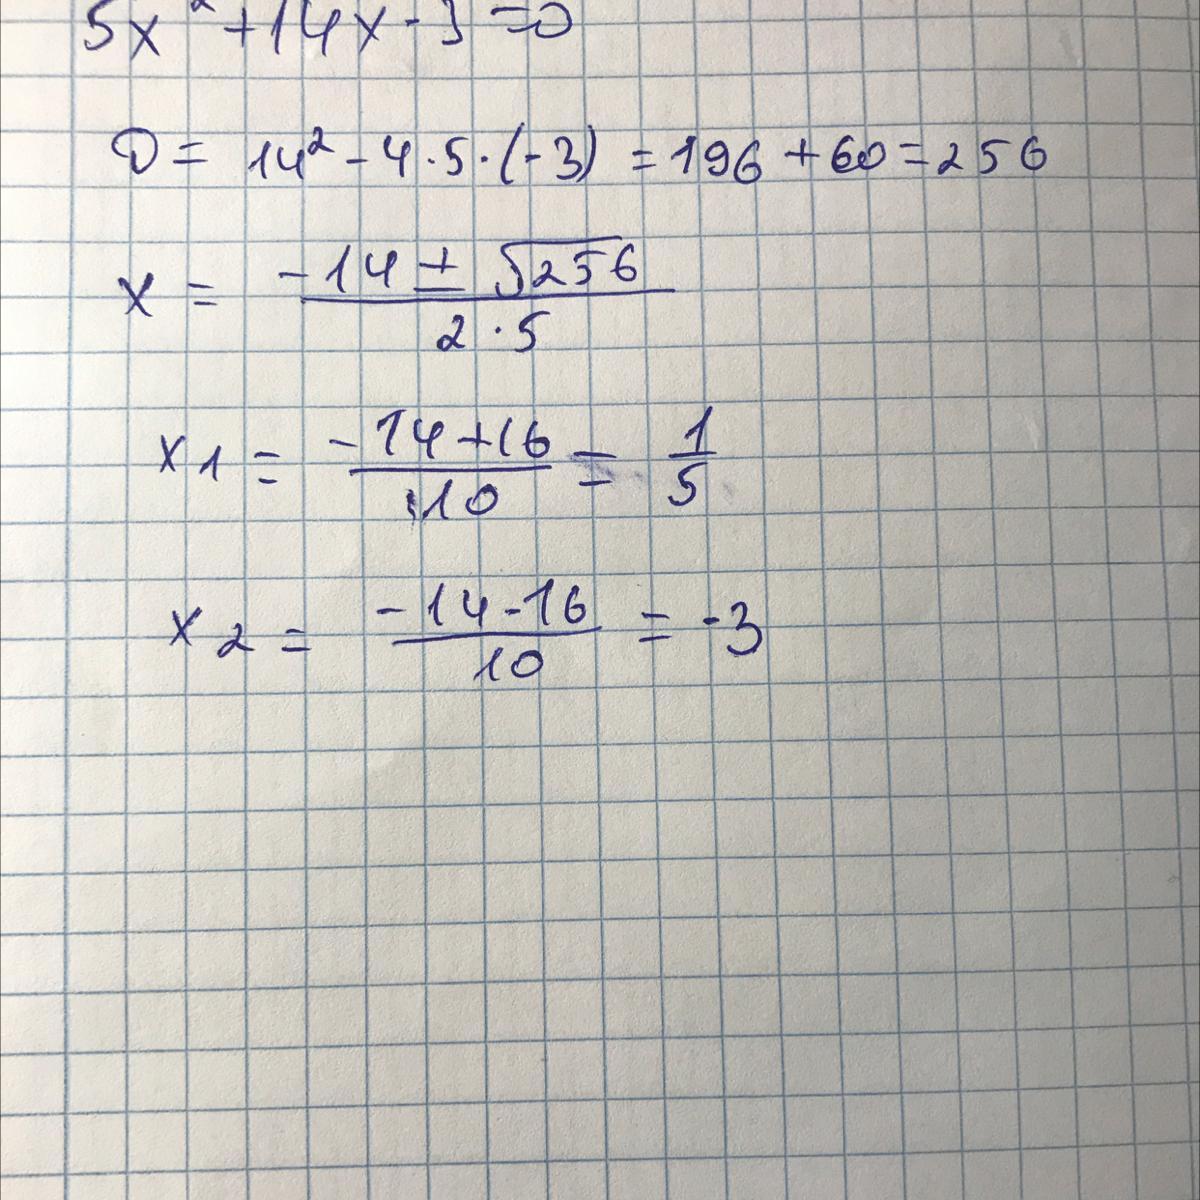 5x² + 14x - 3 = 0
D = 14² - 4 · 5 · (-3) = 196 + 60 = 256
x = (-14 ± √256) / (2 · 5)
x1 = (-14 + 16) / 10 = 1/5
x2 = (-14 - 16) / 10 = -3